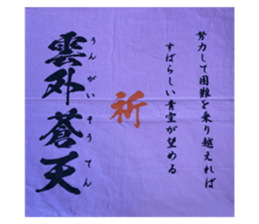 努力して困難を乗り越えれば
すばらしい青空が望める
祈
雲外蒼天
うんがいそうてん